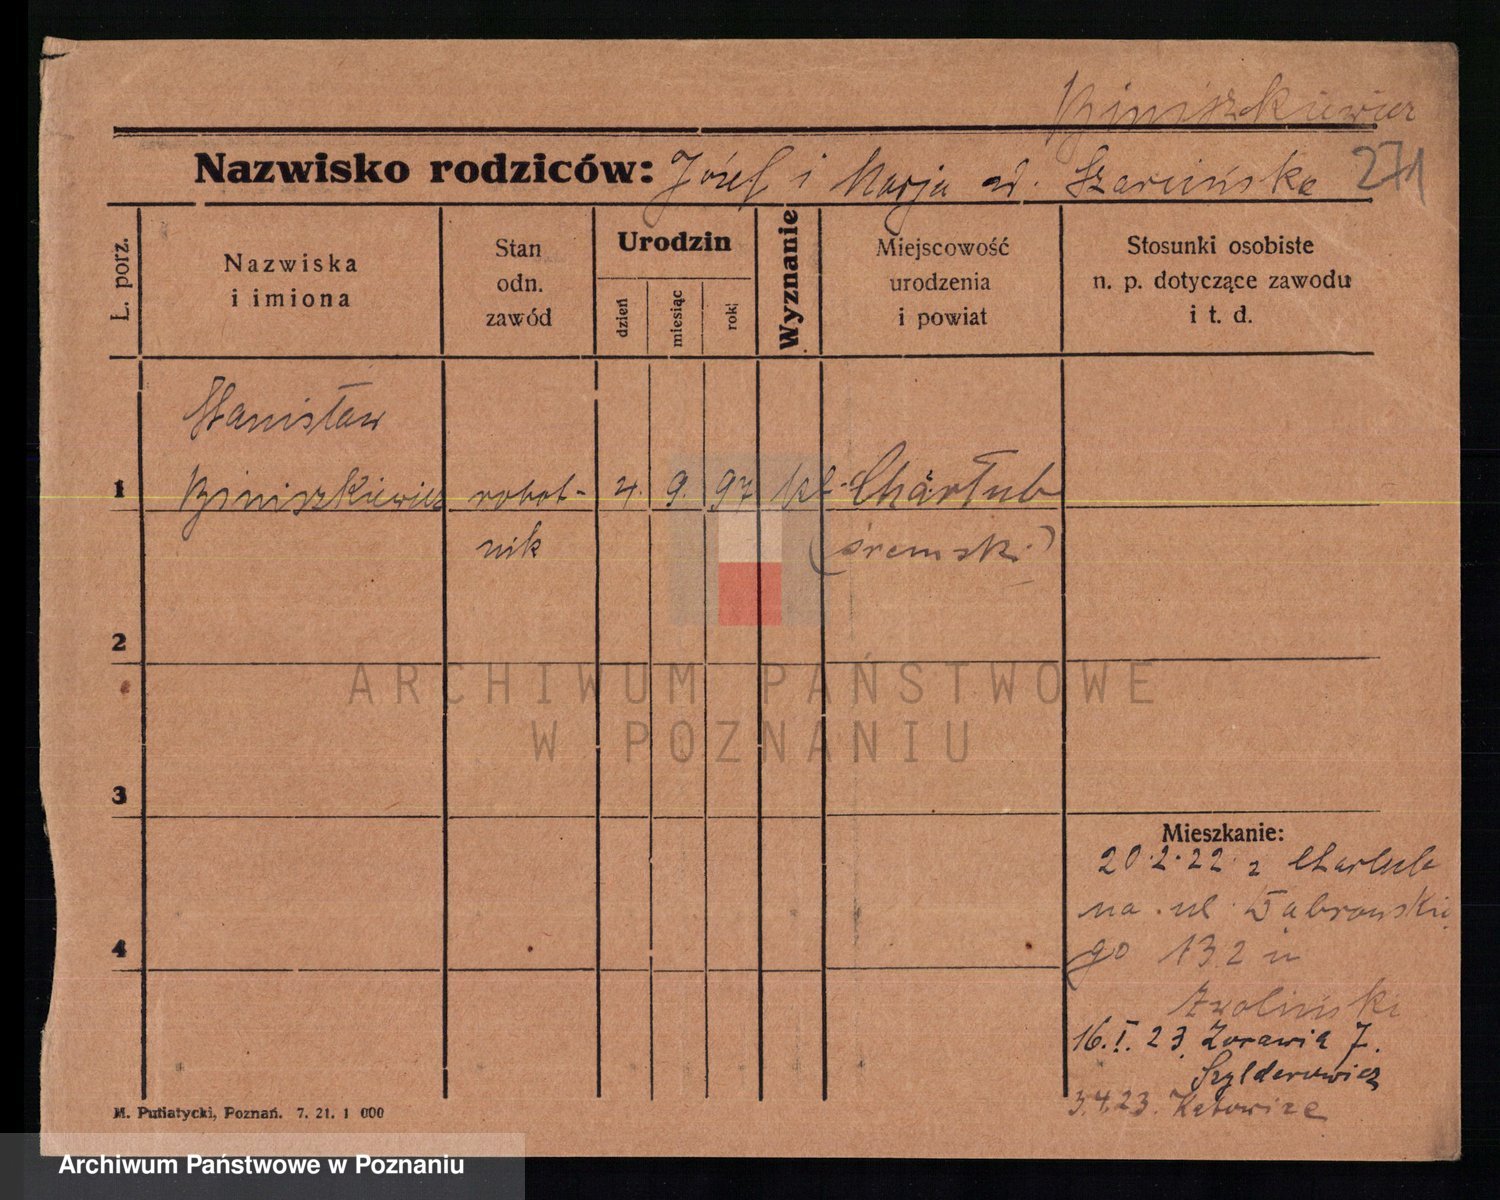 Biniszkiewicz
Nazwisko rodziców: Józef i Marja 271
L. porz.
Nazwiska
i imiona
Stan
odn.
zawód
Urodzin
dzień
miesiąc
rok
Wyznanie
Miejscowość
urodzenia
i powiat
Stosunki osobiste
n. p. dotyczące zawodu
i t. d.
Stanisław
1 Biniszkiewicz robot- 4. 9. 97 kt. Charłub
nik (śremski)
2
ARCHIWUM PAŃSTWOWE
W POZNANIU
3
Mieszkanie:
20.2.22 z Charłub
na ul Dabrowskie
4 go 132 u
Zwoliński
16.I.23. Zorawia 7.
Szylderowicz
3.4.23. Katowice
M. Putiatycki, Poznań. 7. 21. 1 000
Archiwum Państwowe w Poznaniu